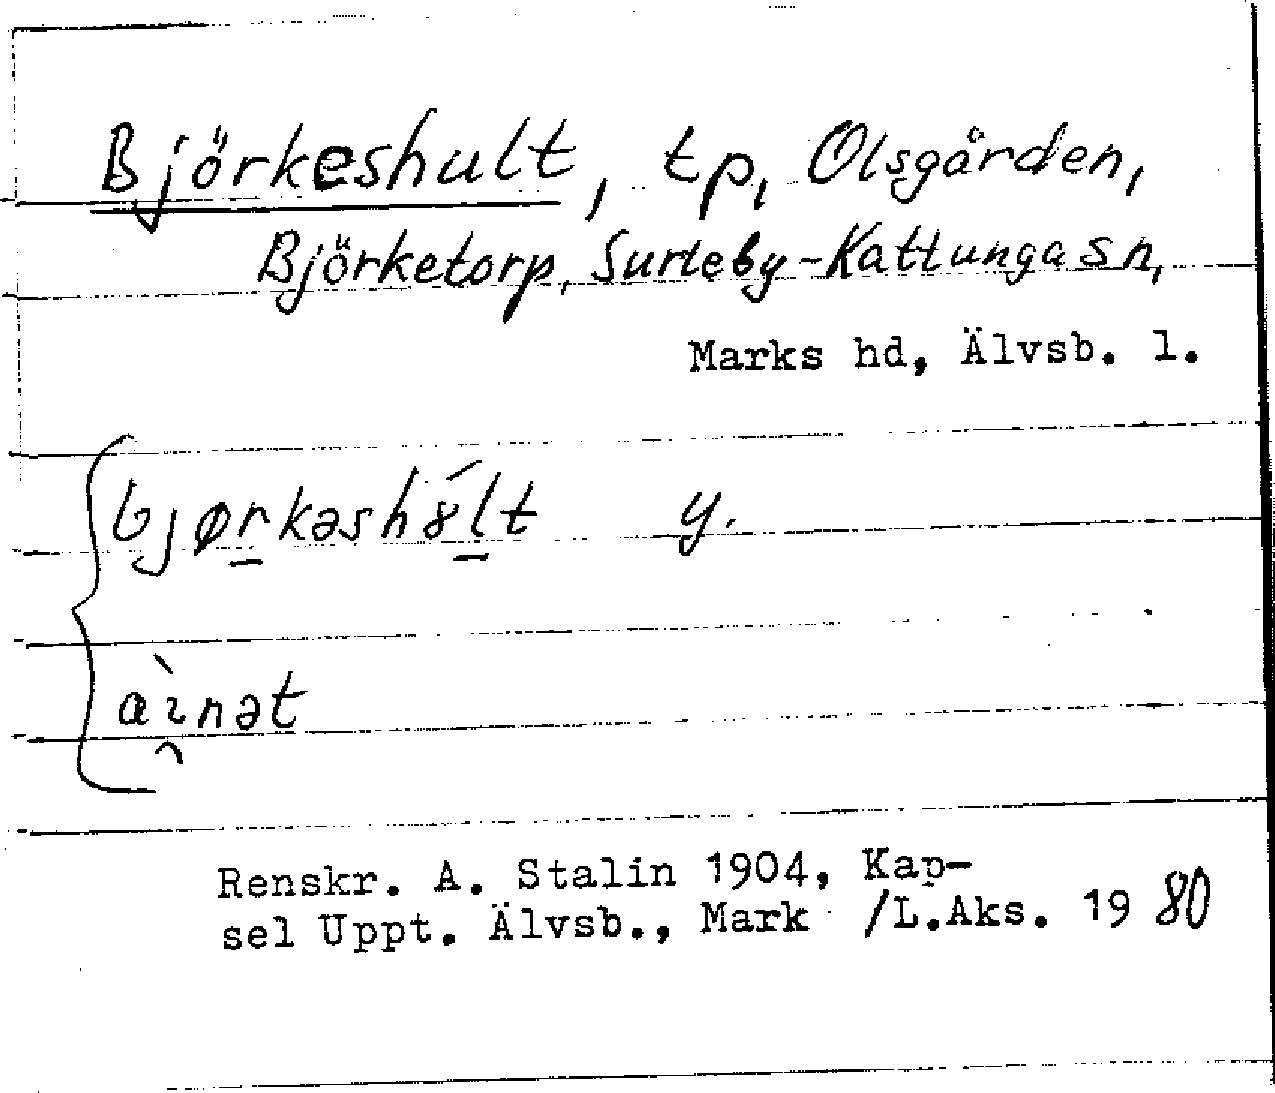 Björkeshult, tp, Olsgården,
Björketorp, Surteby-Kattunga sn,
Marks hd, Älvsb. l.
bjørkəshȣ́lt y.
aɩ̀nət
Renskr. A. Stalin 1904, Kap-
sel Uppt. Älvsb., Mark /L.Aks. 1980